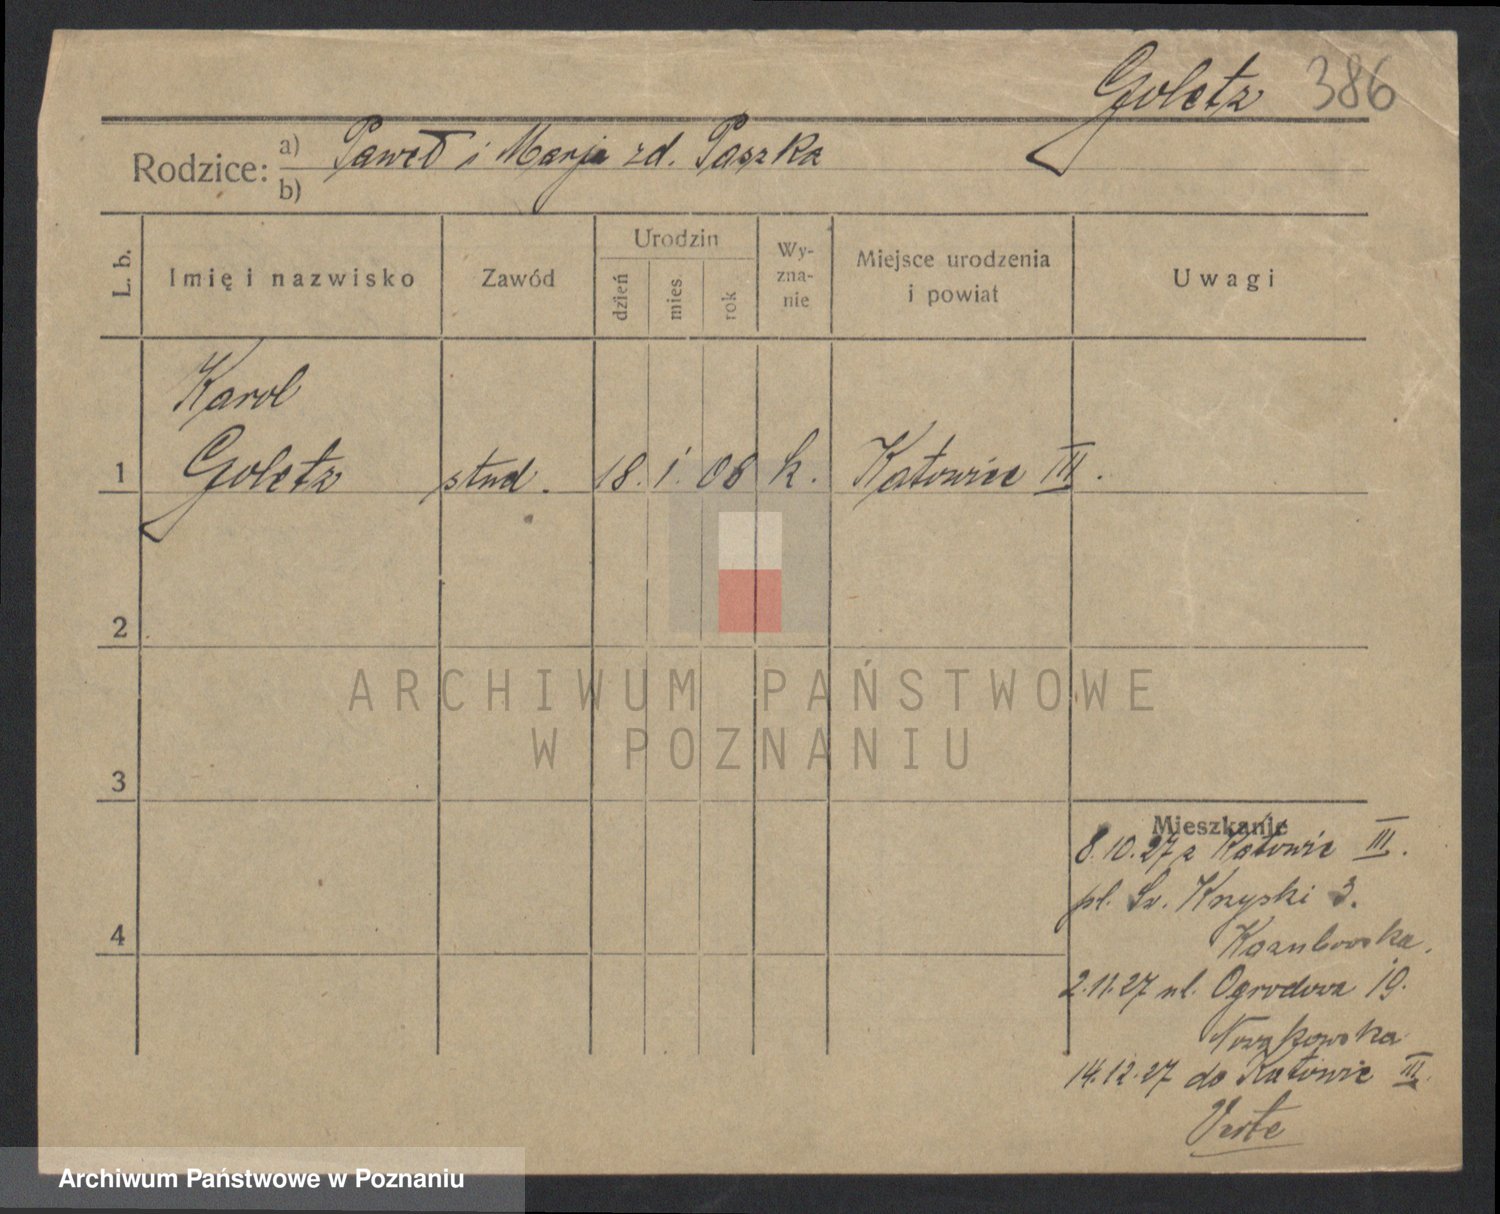 Goletz 386
Rodzice: a) Paweł i Marja zd. Paszka
b)
L. b.
Imię i nazwisko
Zawód
Urodzin
dzień
mies.
rok
Wy-
zna-
nie
Miejsce urodzenia
i powiat
Uwagi
Karol
1 Goletz stud. 18. 1. 08 k. Katowice III.
2
3
4
ARCHIWUM PAŃSTWOWE
W POZNANIU
Mieszkanie
8.10.27 z Katowic III.
pl. Św. Krzyski 3.
Kozubowska.
2.11.27 ul. Ogrodowa 19.
Nowakowska
14.12.27 do Katowic III.
Verte
Archiwum Państwowe w Poznaniu